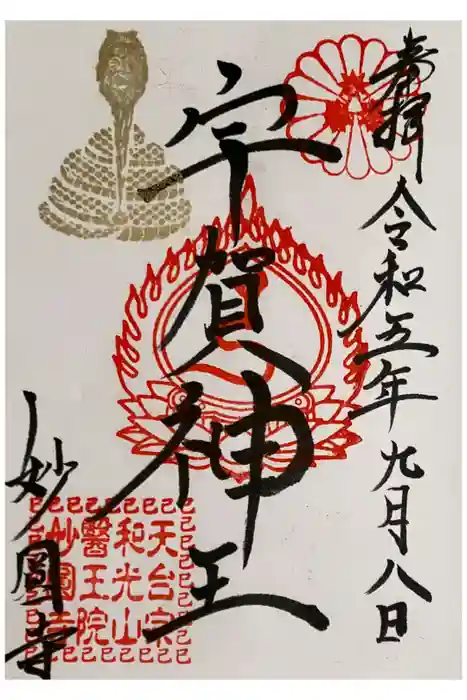 奉拝
令和五年九月八日
宇賀神王
天台宗
和光山
醫王院
妙圓寺
妙圓寺